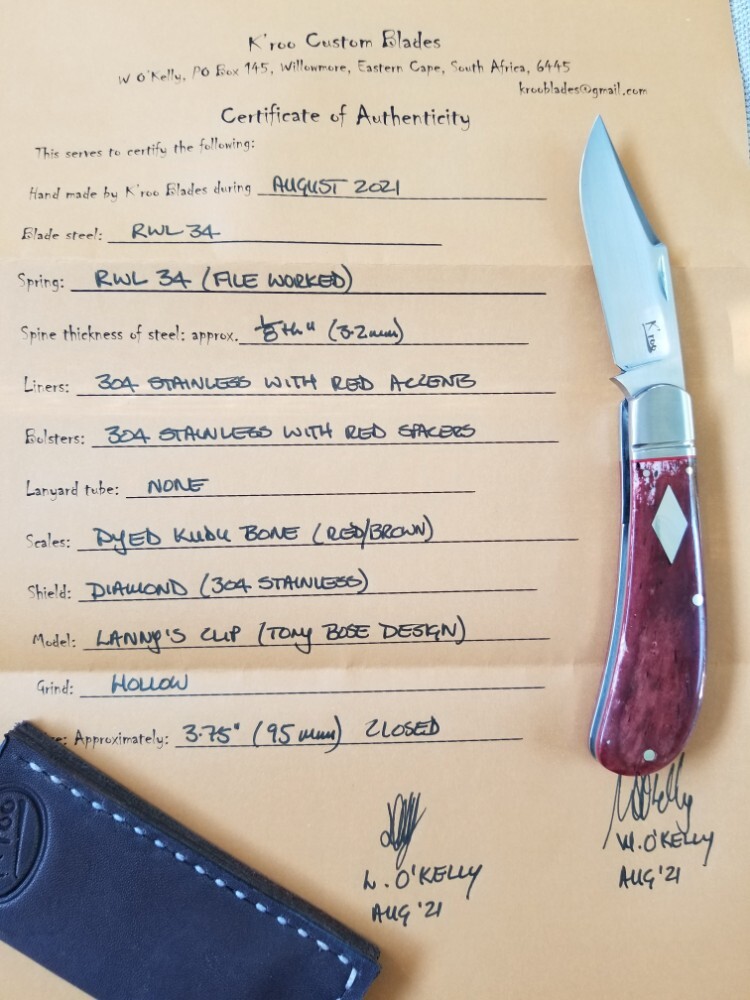 K'roo Custom Blades
W O'Kelly, PO Box 145, Willowmore, Eastern Cape, South Africa, 6445
krooblades@gmail.com
Certificate of Authenticity
This serves to certify the following:
Hand made by K'roo Blades during AUGUST 2021
Blade steel: RWL 34
Spring: RWL 34 (FILE WORKED)
Spine thickness of steel: approx. 1/8th" (3.2mm)
Liners: 304 STAINLESS WITH RED ACCENTS
Bolsters: 304 STAINLESS WITH RED SPACERS
Lanyard tube: NONE
Scales: DYED KUDU BONE (RED/BROWN)
Shield: DIAMOND (304 STAINLESS)
Model: LANNY'S CLIP (TONY BOSE DESIGN)
Grind: HOLLOW
Approximately: 3.75" (95mm) CLOSED
L. O'KELLY
AUG '21
W. O'KELLY
AUG '21
K'roo